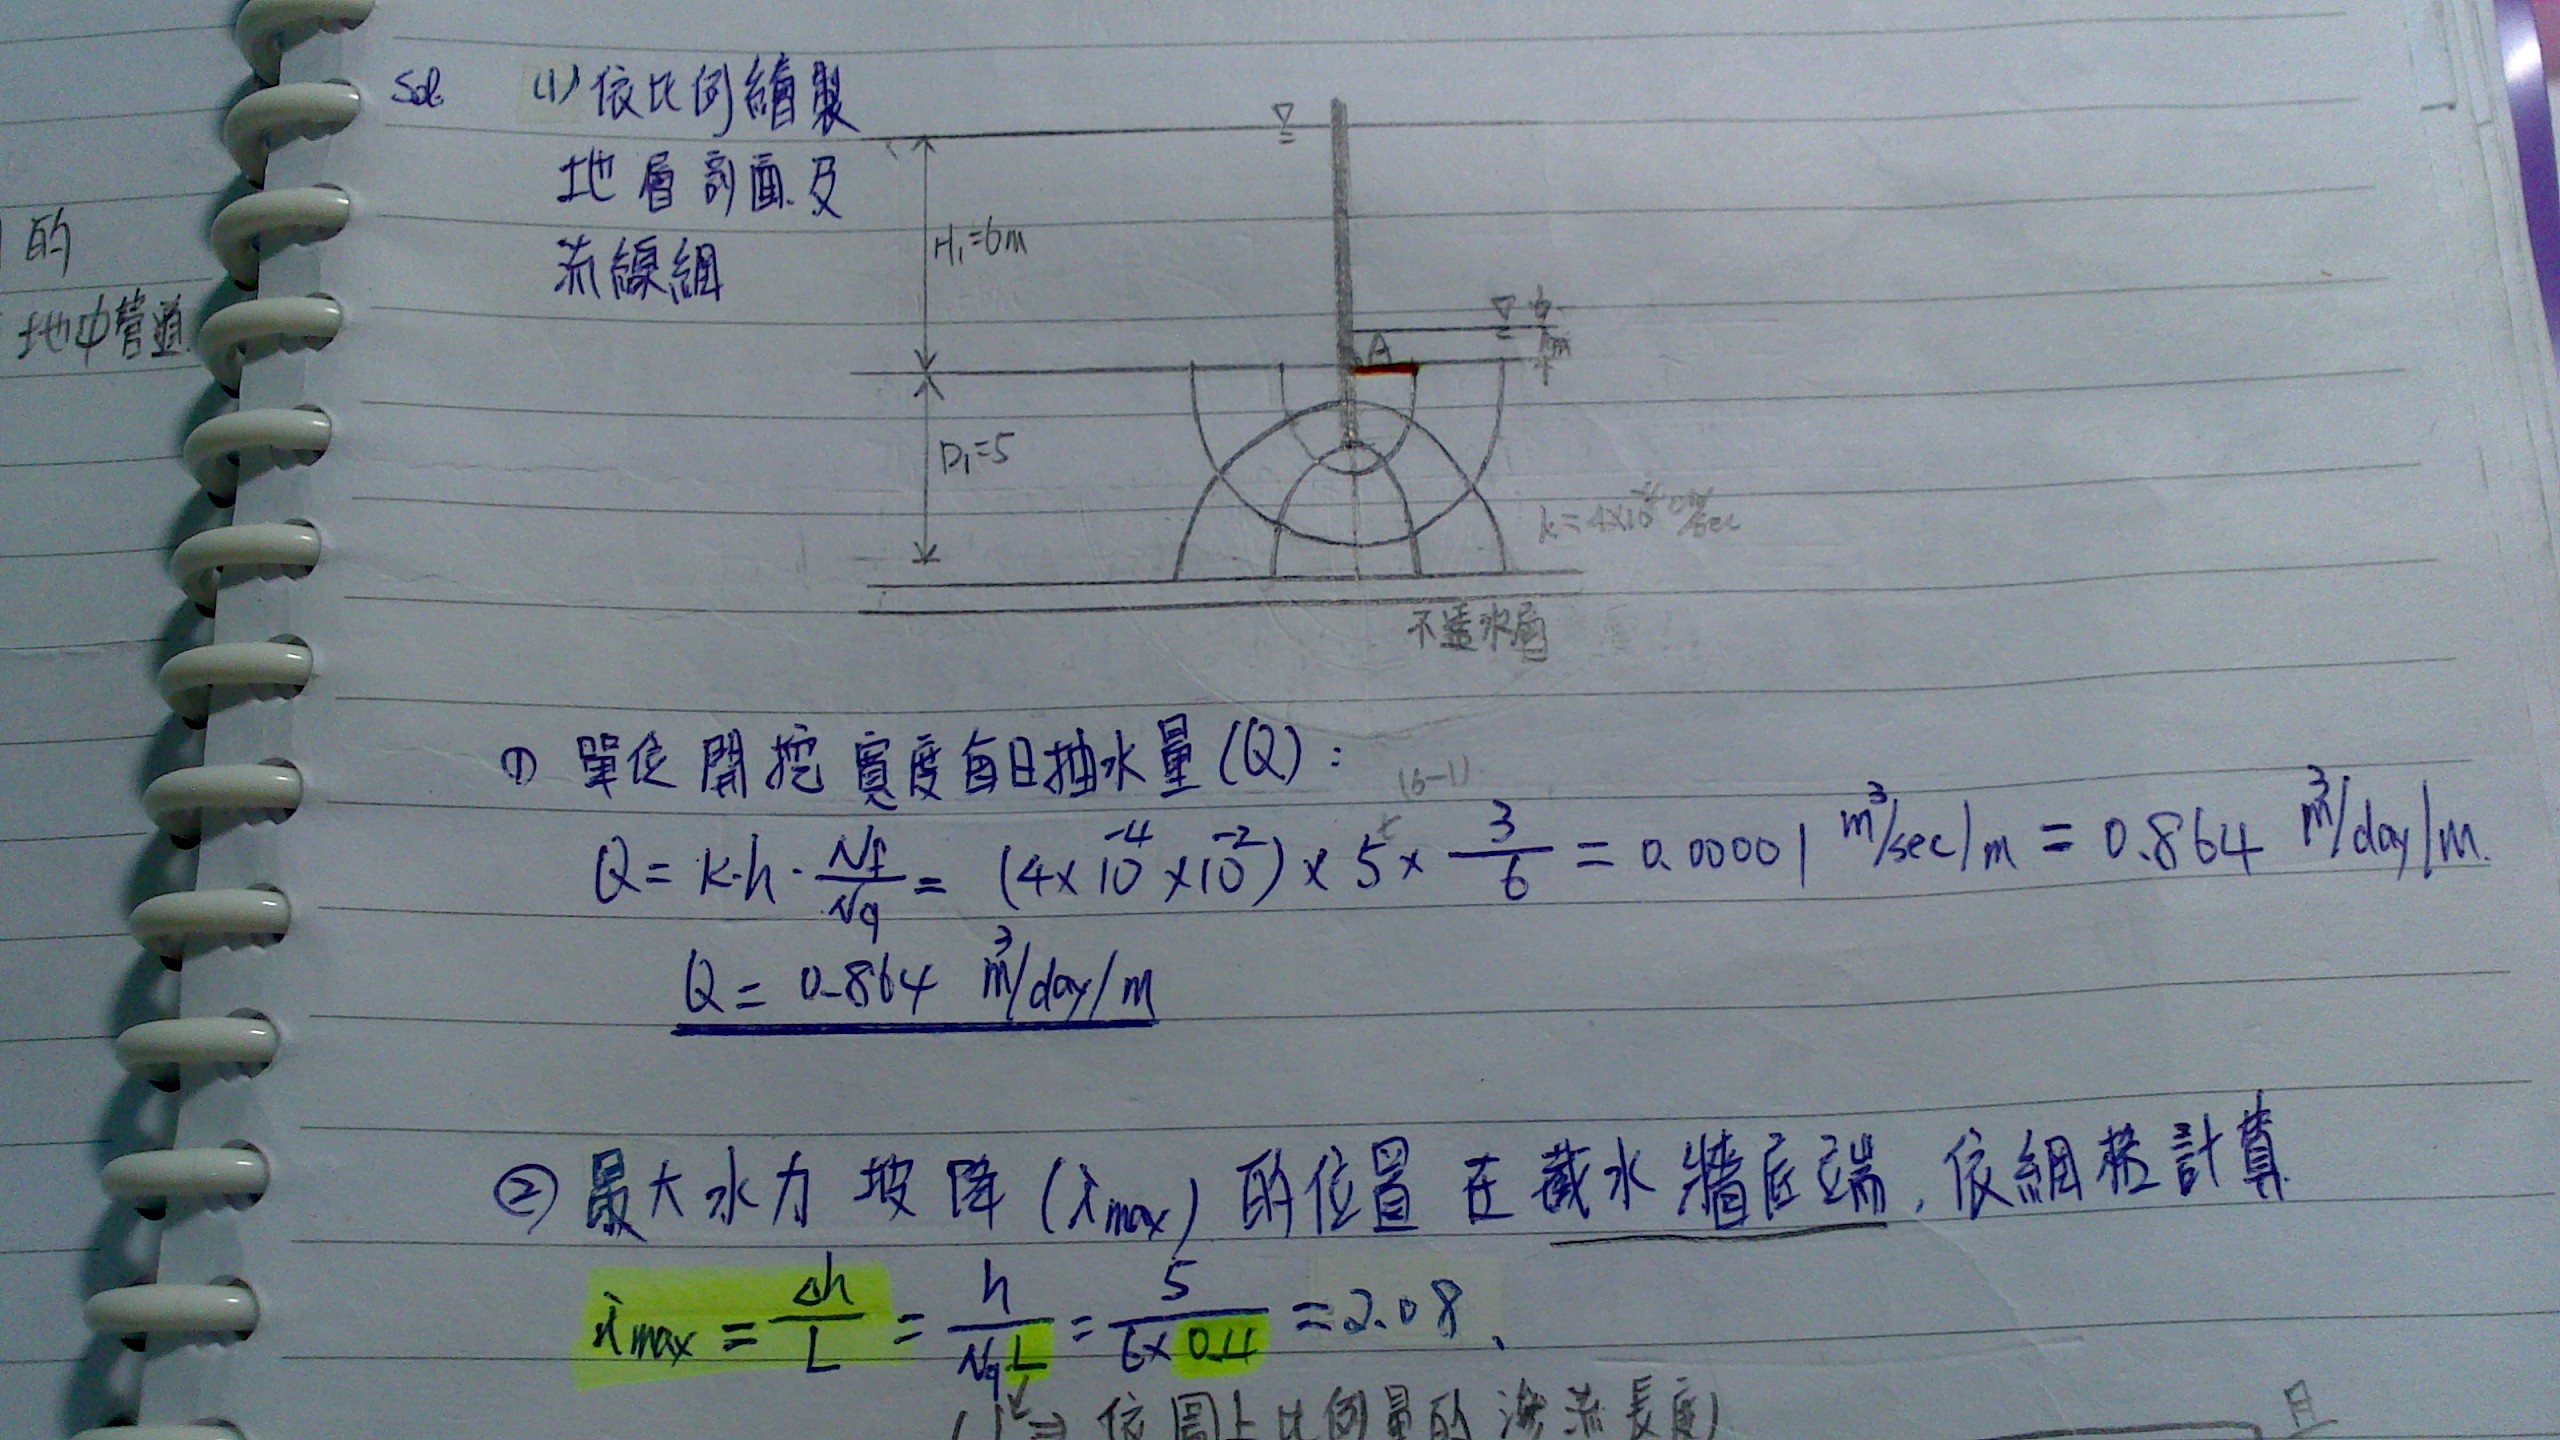 的
地中管道
Sol. (1) 依比例繪製
地層剖面及
流線網
H₁=6m
A
1m
D₁=5
k=4×10⁻⁴ cm/sec
不透水層
① 單位開挖寬度每日抽水量(Q):
(6-1)
Q = k·h·Nf/Nq = (4×10⁻⁴×10⁻²)×5×3/6 = 0.00001 m³/sec/m = 0.864 m³/day/m.
Q = 0.864 m³/day/m
② 最大水力坡降(imax)的位置在截水牆底端,依網格計算
imax = Δh/L = h/NqL = 5/6×0.4 = 2.08.
(L⇒依圖上比例量的滲流長度)